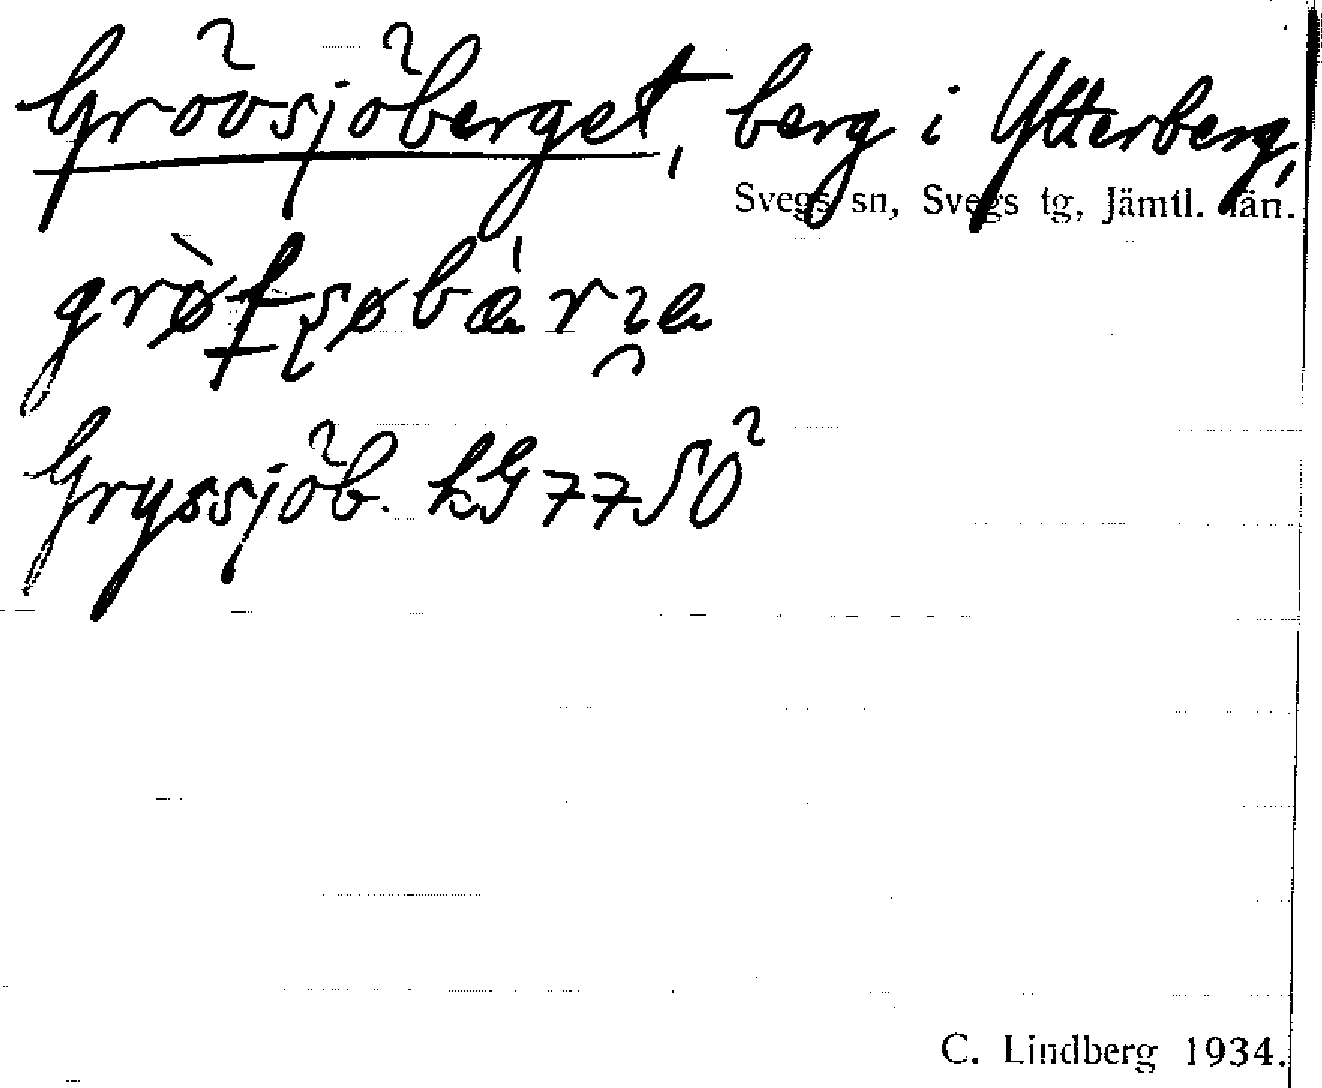 Grövsjöberget, berg i Ytterberg,
Svegs sn, Svegs tg, Jämtl. län.
Gryssjöb. kG 7750²
C. Lindberg 1934.